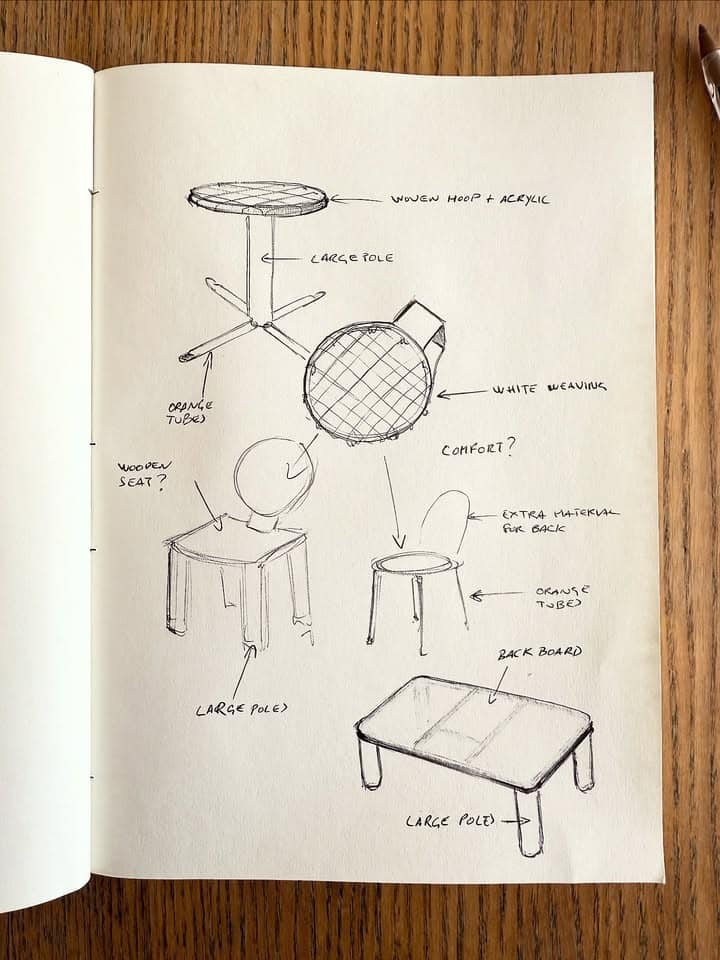 WOVEN HOOP + ACRYLIC
LARGE POLE
ORANGE
TUBES
WHITE WEAVING
COMFORT?
WOODEN
SEAT?
EXTRA MATERIAL
FOR BACK
ORANGE
TUBES
BACK BOARD
LARGE POLES
LARGE POLES